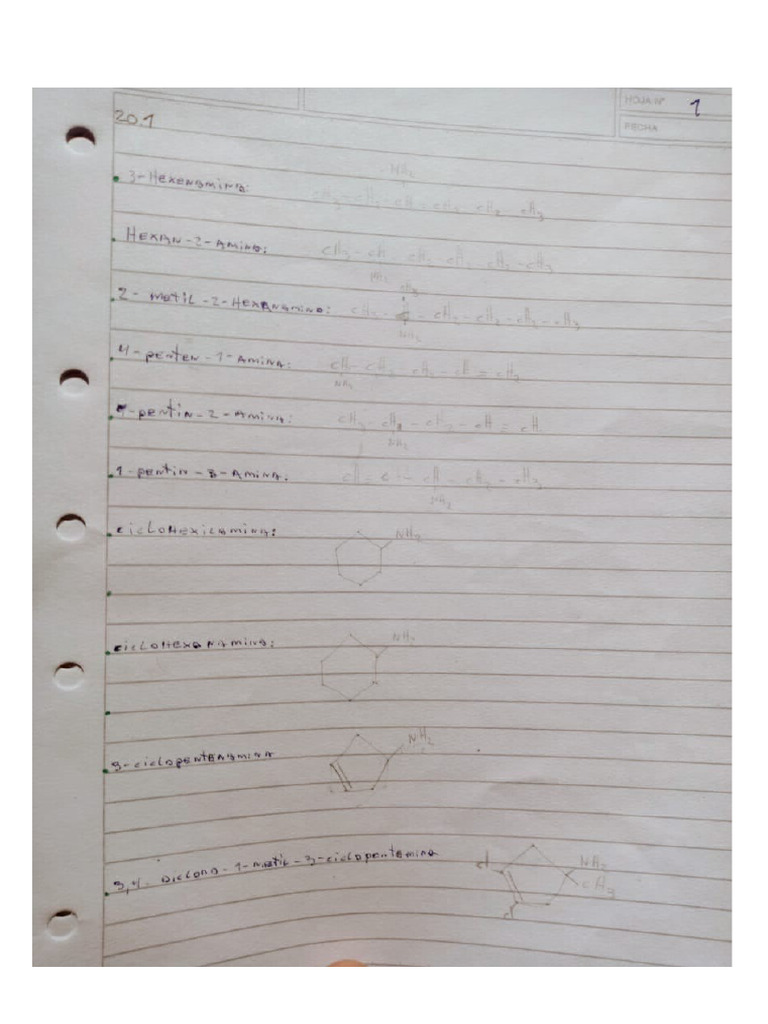 HOJA Nº 1
FECHA
20.1
NH2
• 3-Hexenamina: CH3 - CH2 - CH - CH2 - CH2 - CH3
• Hexan-2-amina: CH3 - CH - CH2 - CH2 - CH2 - CH3
NH2
CH3
• 2-metil-2-Hexanamina: CH3 - C - CH2 - CH2 - CH2 - CH3
NH2
• 4-penten-1-amina: CH - CH2 - CH2 - CH = CH2
NH2
• 4-pentin-2-amina: CH3 - CH - CH2 - CH = CH
NH2
• 1-pentin-3-amina: CH = C - CH - CH2 - CH3
NH2
• ciclohexilamina: NH2
• ciclohexanamina: NH2
NH2
• 3-ciclopentenamina
• 3,4-Dicloro-1-metil-3-ciclopentemina cl NH2
CH3
cl